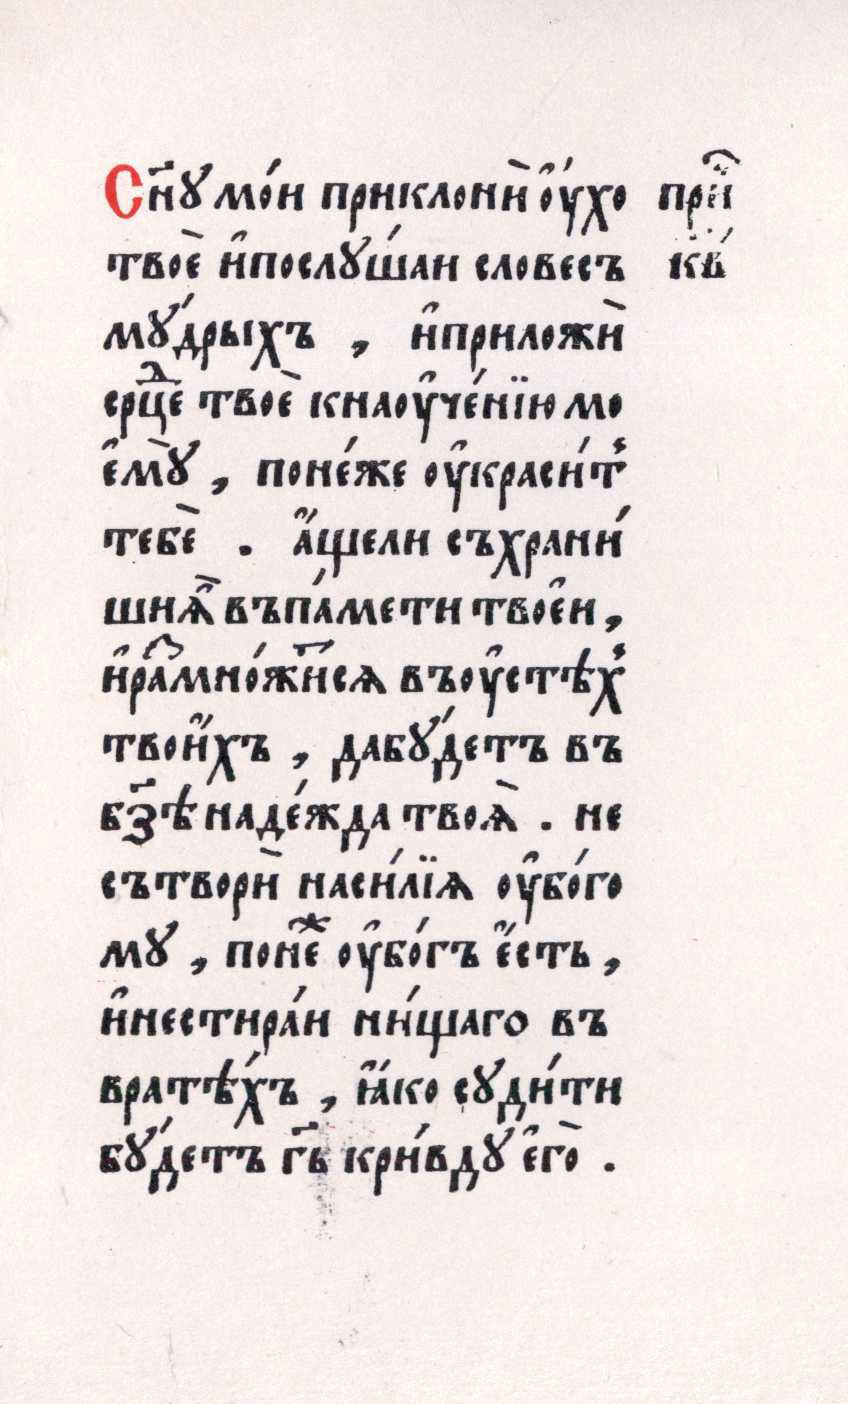 Сн҃у мо́и приклонѝ ᲂу҆́хо
твоѐ и҆послуша́и словесъ
мꙋ́дрыхъ , и҆приложѝ
срⷣце твоѐ кнаᲂу҆че́нїю мо
е҆мꙋ̀ , поне́же ᲂу҆краси́т
тебѐ . а҆́щели съхрани́
шиѧ҆̀ въпа́мети твое҆и ,
и҆раⷥмно́жи҃сѧ въᲂу҆стѣ́х
твои҆́хъ , дабꙋ́детъ въ
бз҃ѣ наде́жда твоѧ̀ . не
сътворѝ наси́лїѧ ᲂу҆бо́го
мꙋ , понеⷤ ᲂу҆бо́гъ е҆́сть ,
и҆нестира́и ни́щаго въ
вратѣ́хъ , ꙗ҆́ко сꙋди́ти
бꙋ́детъ гь҃ кри́вдꙋ е҆гѡ̀ .
при҃
кв́